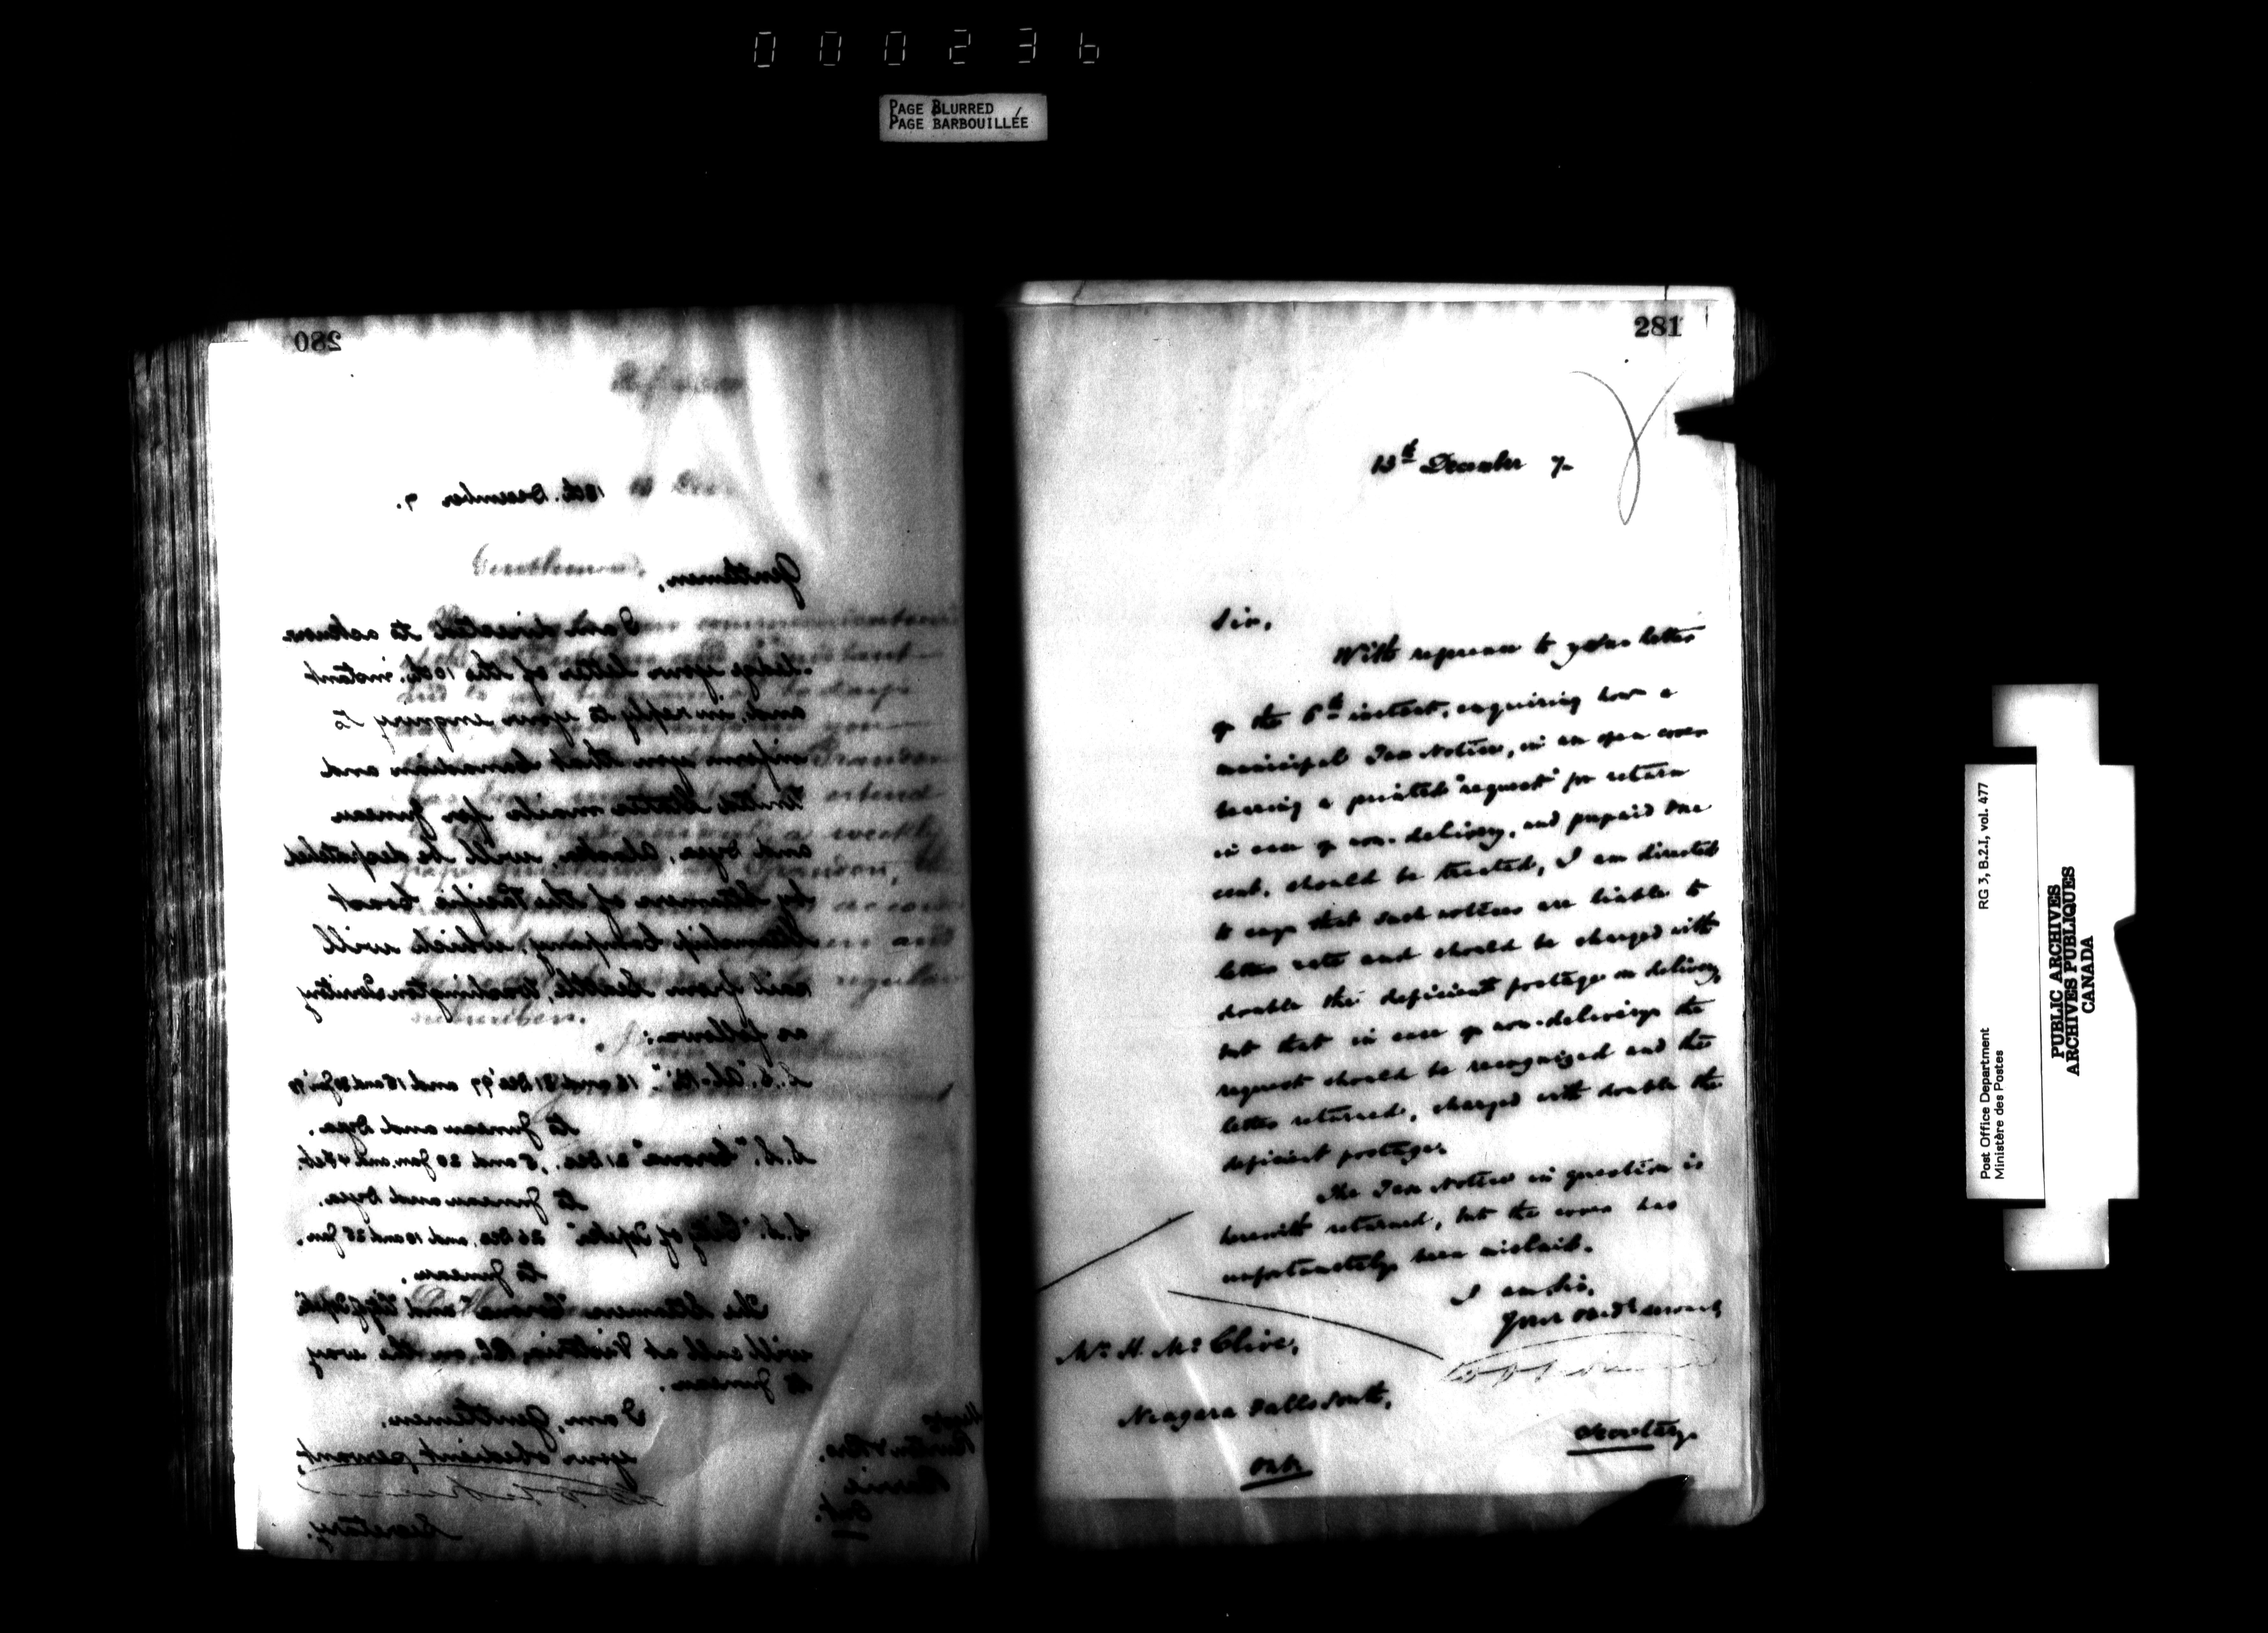 000236
PAGE BLURRED
PAGE BARBOUILLÉE
280
13th. December 7.
Gentlemen,
I am directed to acknow
-ledge your letter of the 10th. instant
and, in reply to your inquiry, to
inform you that Canadian and
United States mails for Juneau
and Dyea, Alaska, will be despatched
by Steamers of the Pacific Coast
Steamship Company, which will
sail from Seattle, Washington Territory
as follows:
S.S. "Al-Ki" 16 and 31 Dec '97 and 15 and 30 Jan '98
to Juneau and Dyea.
S.S. "Corona" 21 Dec., 5 and 20 Jan. and 4 Feb.
to Juneau and Dyea.
S.S. "City of Topeka" 26 Dec. and 10 and 25 Jan.
to Juneau.
The Steamers "Corona" and "City of Topeka"
will call at Victoria, BC, on the way
to Juneau.
I am, Gentlemen,
your obedient servant,
Secretary.
Barrie
Ont.
281
13th December 7-
Sir,
With reference to your letter
of the 6th instant, enquiring how a
municipal Tax Notice, in an open cover
bearing a printed "request" for return
in case of non-delivery, and prepaid one
cent, should be treated, I am directed
to say that such notices are liable to
letter rate and should be charged with
double the deficient postage on delivery,
but that in case of non-delivery the
request should be recognized and the
letter returned, charged with double the
deficient postage.
The Tax Notice in question is
herewith returned, but the cover has
unfortunately been mislaid.
I am, Sir,
Your obedt servant,
Secretary.
Mr. H. McClive,
Niagara Falls South,
Ont.
Post Office Department
Ministère des Postes
RG 3, B.2.I, vol. 477
PUBLIC ARCHIVES
ARCHIVES PUBLIQUES
CANADA